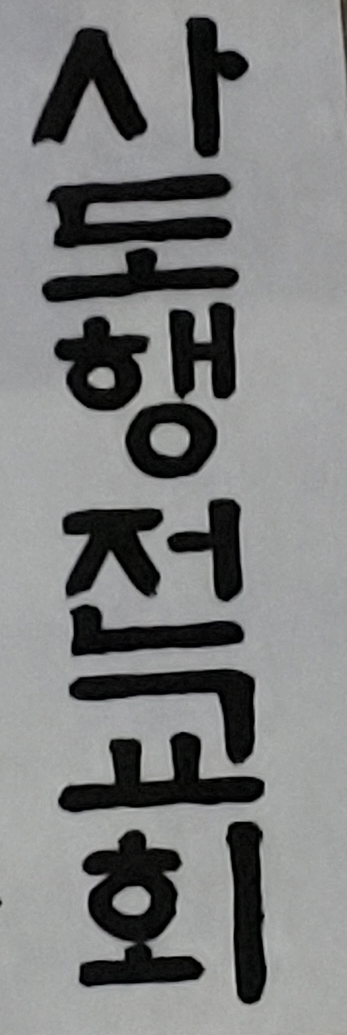 사도행전교회